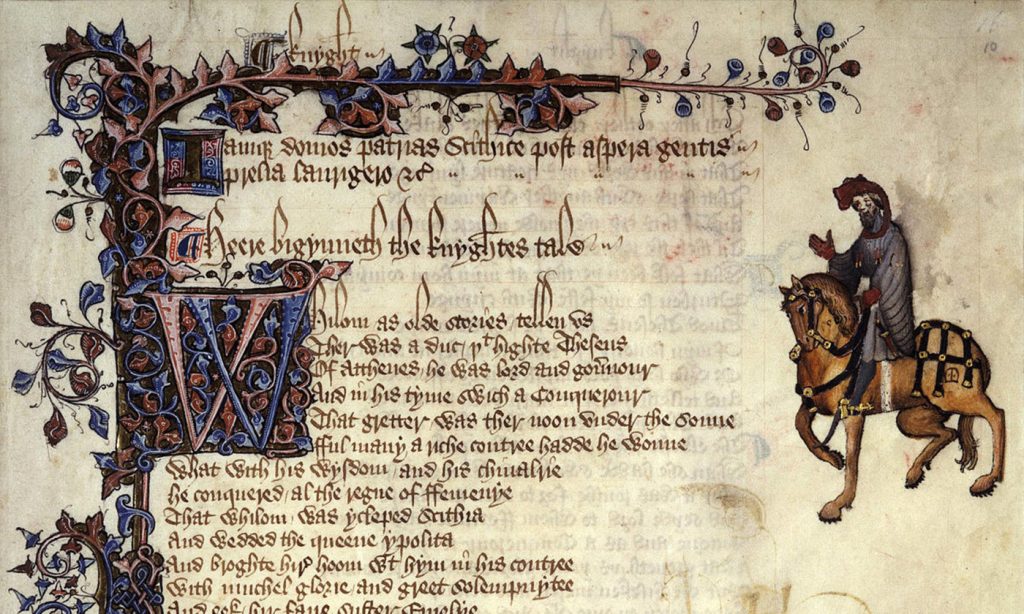 Knyght
10
Iamqꝫ domos patrias Scithice post aspera gentis
Prelia laurigero &c
Heere bigynneth the knyghtes tale
Whilom as olde stories tellen vs
Ther was a duc / þͭ highte Theseus
Of Atthenes / he was lord and gou̅nour
And in his tyme swich a Conquerour
That gretter was ther noon vnder the sonne
fful many a riche contree hadde he wonne
What with his wysdom / and his chiualrie
he conquered / al the regne of ffemenye
That whilom / was ycleped Scithia
And wedded the queene ypolita
And broghte hir̕ hoom wͭ hym in his contree
With muchel glorie / and greet solempnytee
And eek hir faire suster Emelye